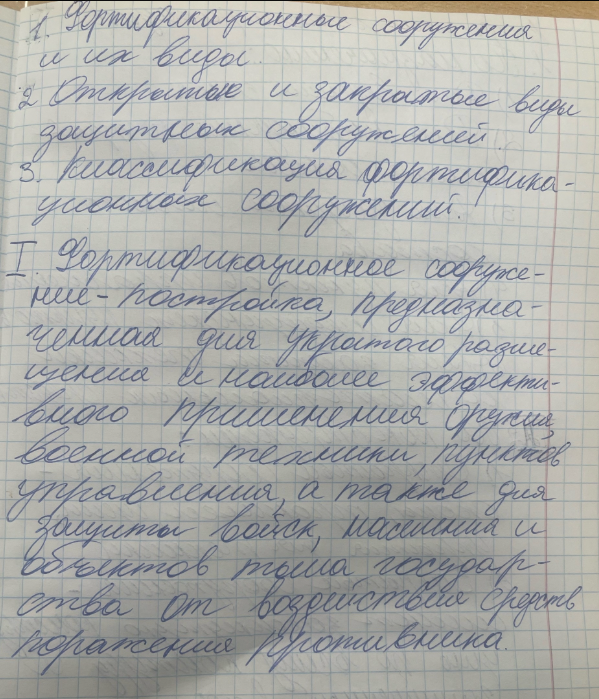 1. Фортификационные сооружения
и их виды.
2 Открытые и закрытые виды
защитных сооружений.
3. Классификация фортифика-
ционных сооружений.
I. Фортификационное сооруже-
ние - постройка, предназна-
ченная для укрытого разме-
щения и наиболее эффекти-
вного применения оружия,
военной техники, пунктов
управления, а также для
защиты войск, населения и
объектов тыла государ-
ства от воздействия средств
поражения противника.